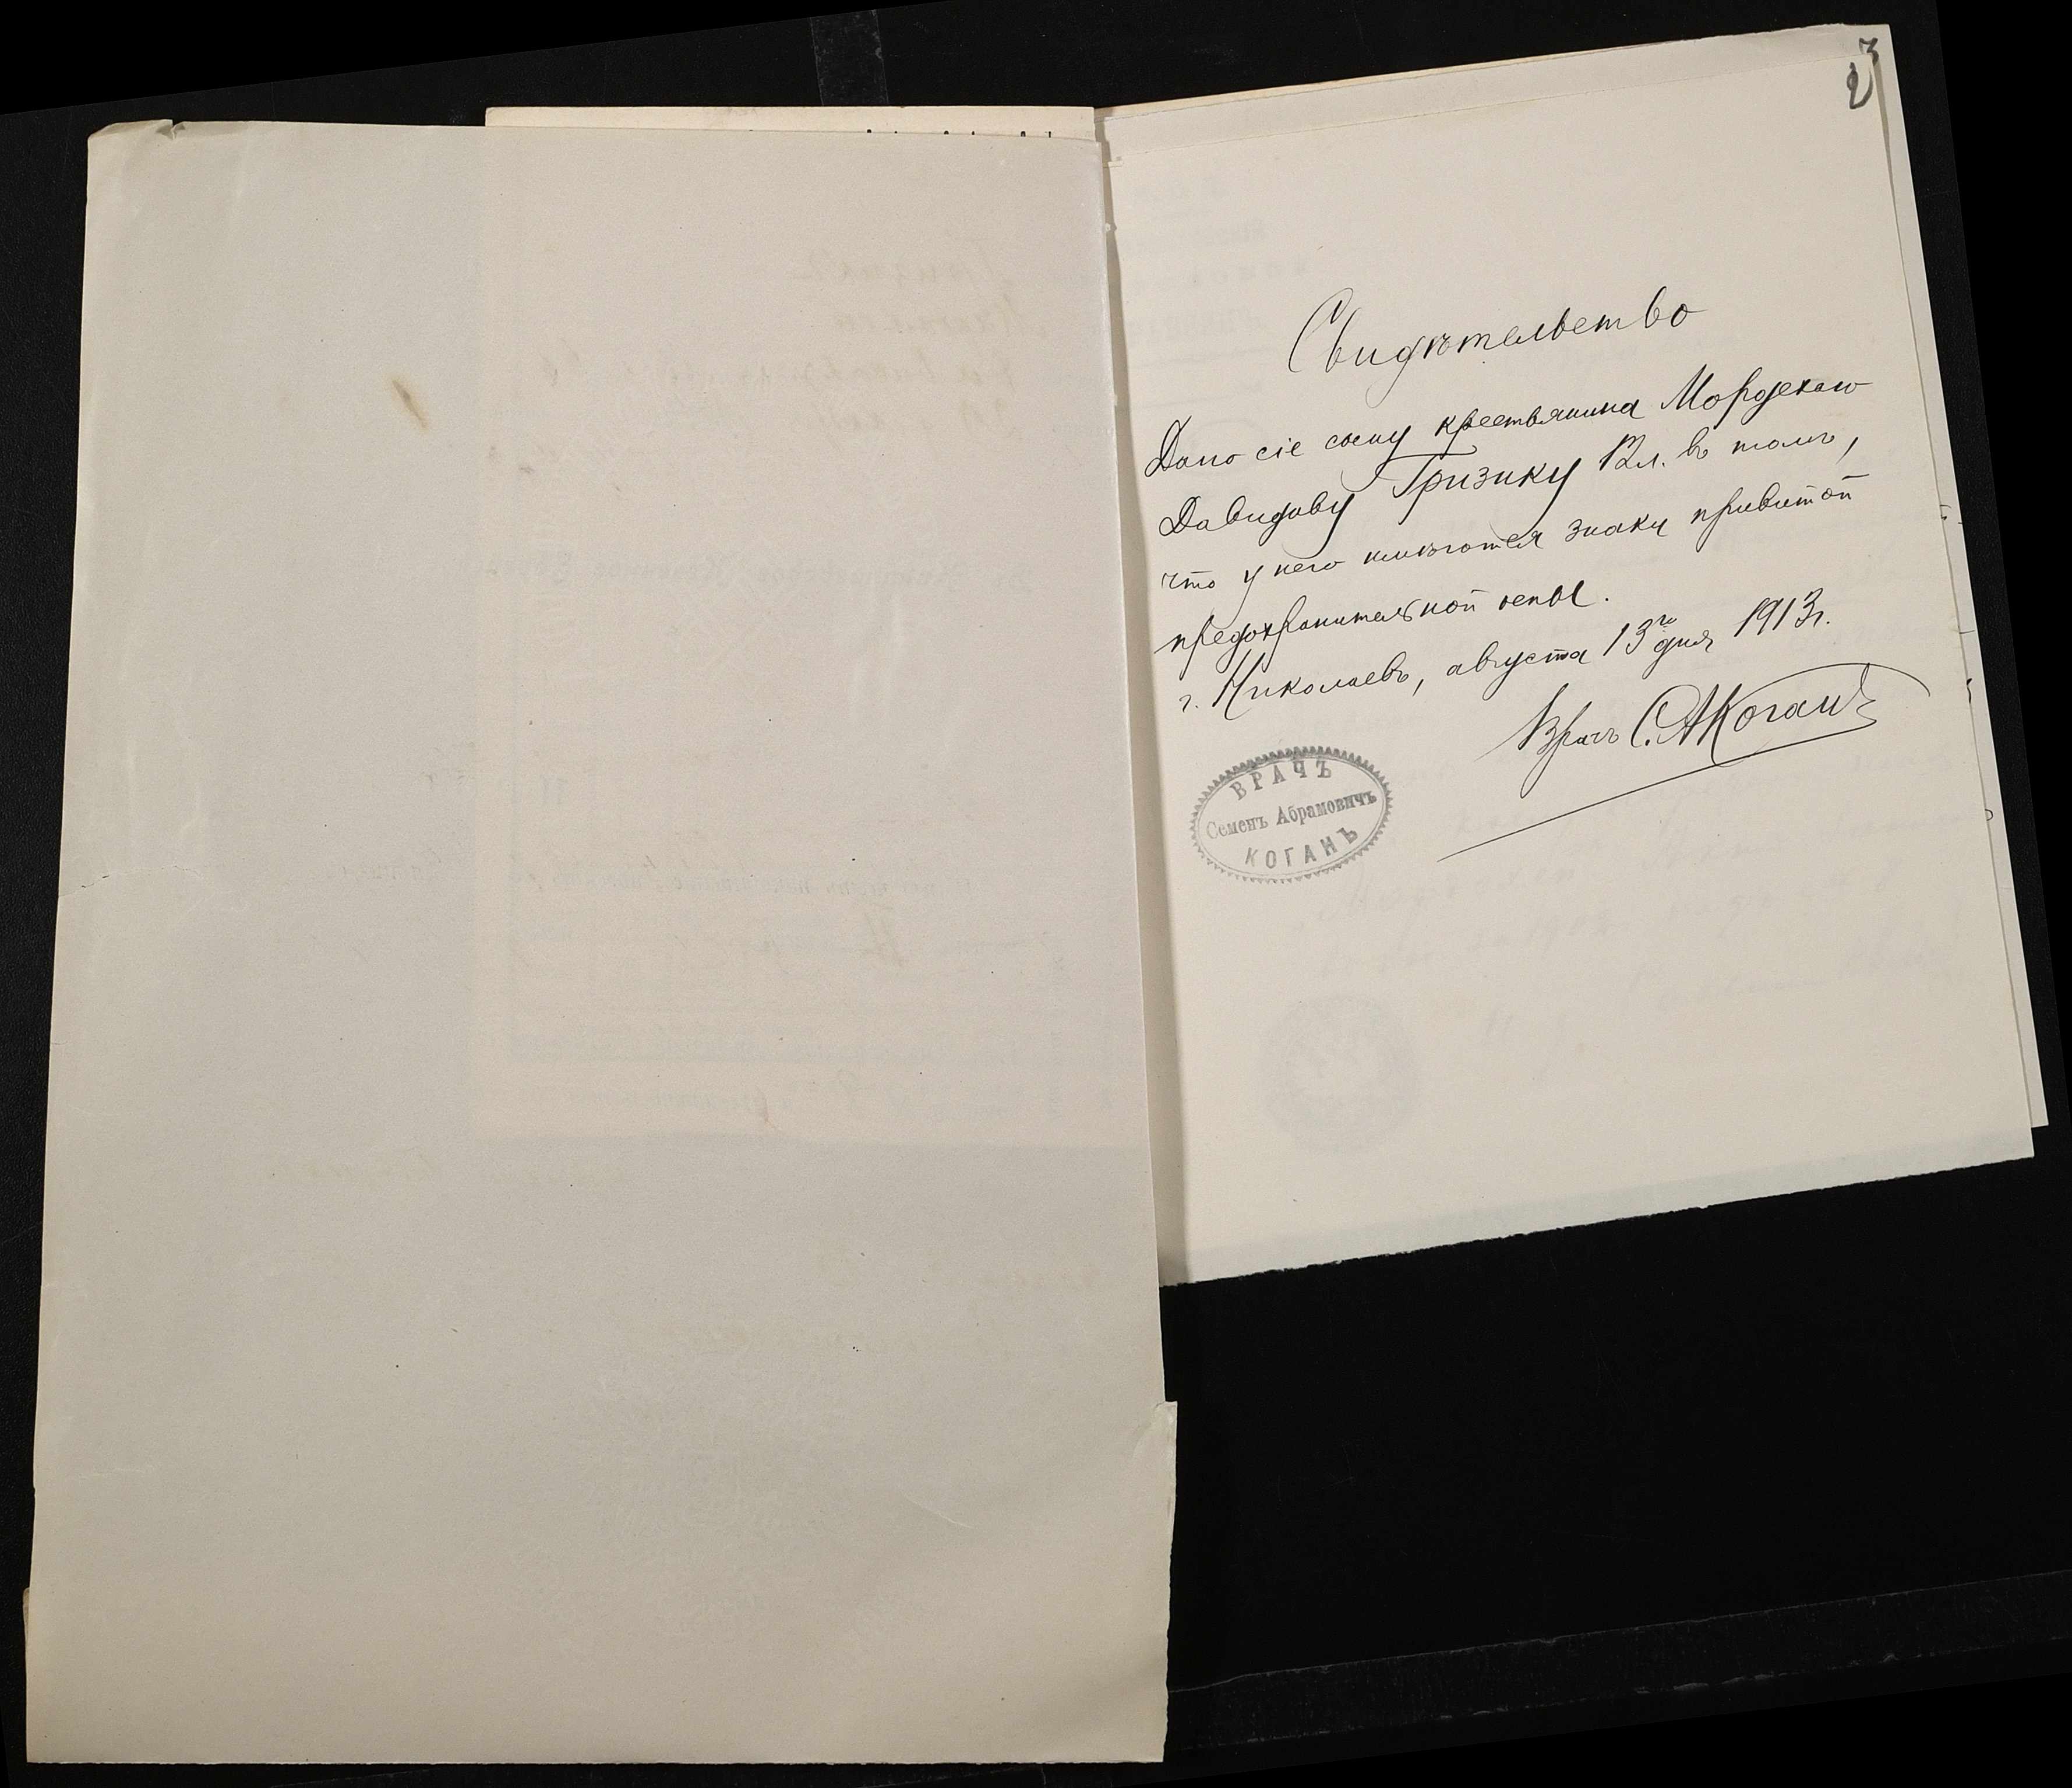 Свидѣтельство
Дано сіе сыну крестьянина Мордехаю
Давидову Гризику 12л. въ томъ,
что у него имѣются знаки привитой
предохранительной оспы.
г. Николаевъ, августа 13го дня 1913г.
Врачъ С.АКоганъ
ВРАЧЪ
Семенъ Абрамовичъ
КОГАНЪ